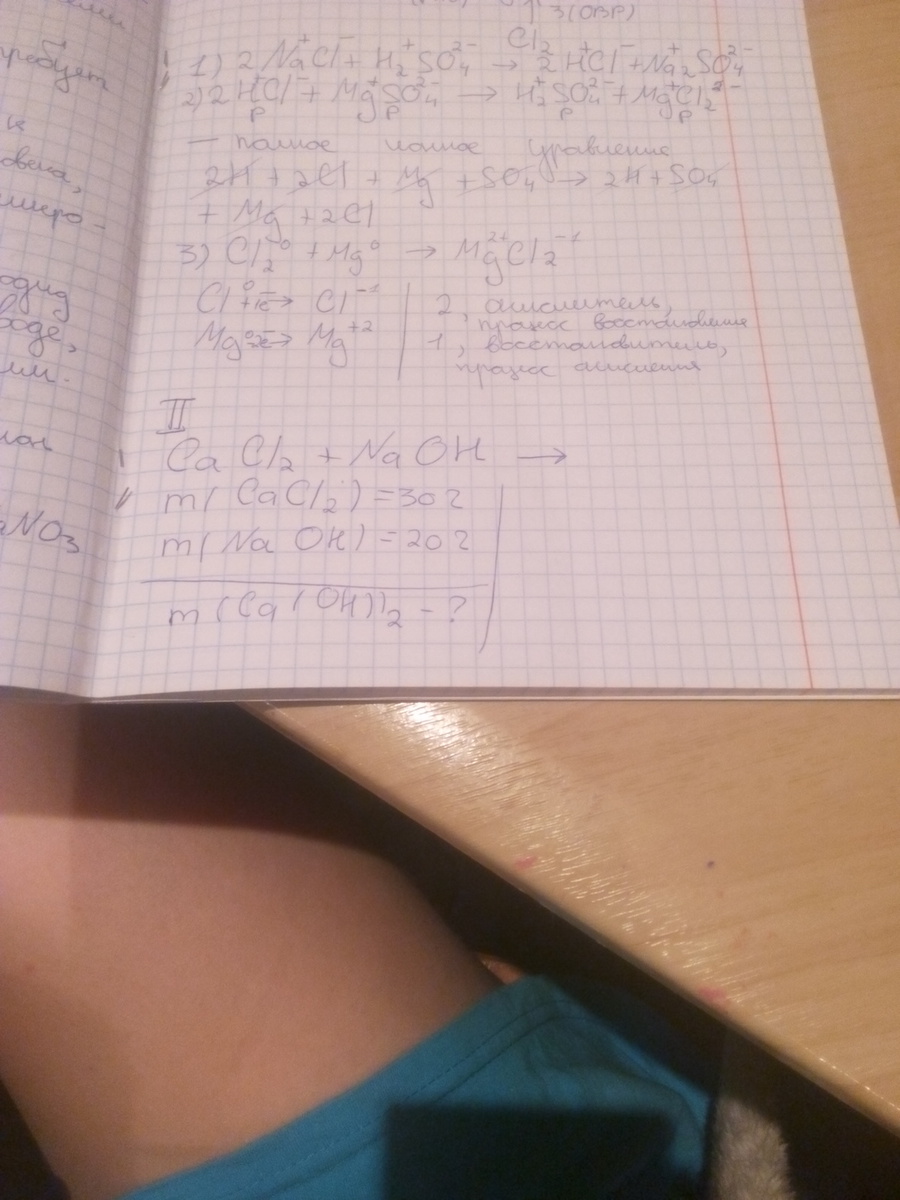 3(ОВР)
Cl₂
1) 2Na⁺Cl⁻ + H₂⁺SO₄²⁻ → 2H⁺Cl⁻ + Na₂⁺SO₄²⁻
2) 2H⁺Cl⁻ + Mg⁺SO₄²⁻ → H₂⁺SO₄²⁻ + Mg⁺Cl₂²⁻
р р р р
— полное ионное уравнение
2H + 2Cl + Mg + SO₄ → 2H + SO₄
+ Mg + 2Cl
3) Cl₂⁰ + Mg⁰ → Mg²⁺Cl₂⁻¹
Cl⁰ +1e⁻→ Cl⁻¹ | 2, окислитель,
процесс восстановления
Mg⁰ -2e⁻→ Mg⁺² | 1, восстановитель,
процесс окисления
II
CaCl₂ + NaOH →
m(CaCl₂) = 30г
m(NaOH) = 20г
m(Ca(OH)₂ - ?
требует
к
NO₃